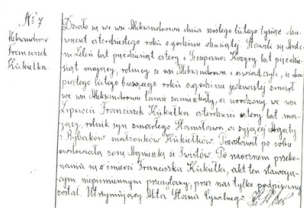 № 7
Aleksandrow
Franciszek
Kukułka
Działo się we wsi Aleksandrowie dnia szóstego lutego tysiąc dzie-
więćset czternastego roku o godzinie
lat pięćdziesiąt cztery i Szczepan lat pięćdzie-
siąt mający, rolnicy z wsi Aleksandrowa i oświadczyli, że dnia
piątego lutego bieżącego roku o godzinie umarł
we wsi Aleksandrowie tamże zamieszkały, a urodzony we wsi
Lipowiec Franciszek Kukułka czterdzieści cztery lat ma-
jący, rolnik syn zmarłego Stanisława i żyjącej Agaty
z Rybaków małżonków Kukułków. Zostawił po sobie
owdowiałą żonę Agnieszkę z Po naocznem przeko-
naniu się o śmierci Franciszka Kukułki, akt ten stawają-
cym niepiśmiennym przeczytany, przez nas tylko podpisany
został. Utrzymujący Akta Stanu Cywilnego